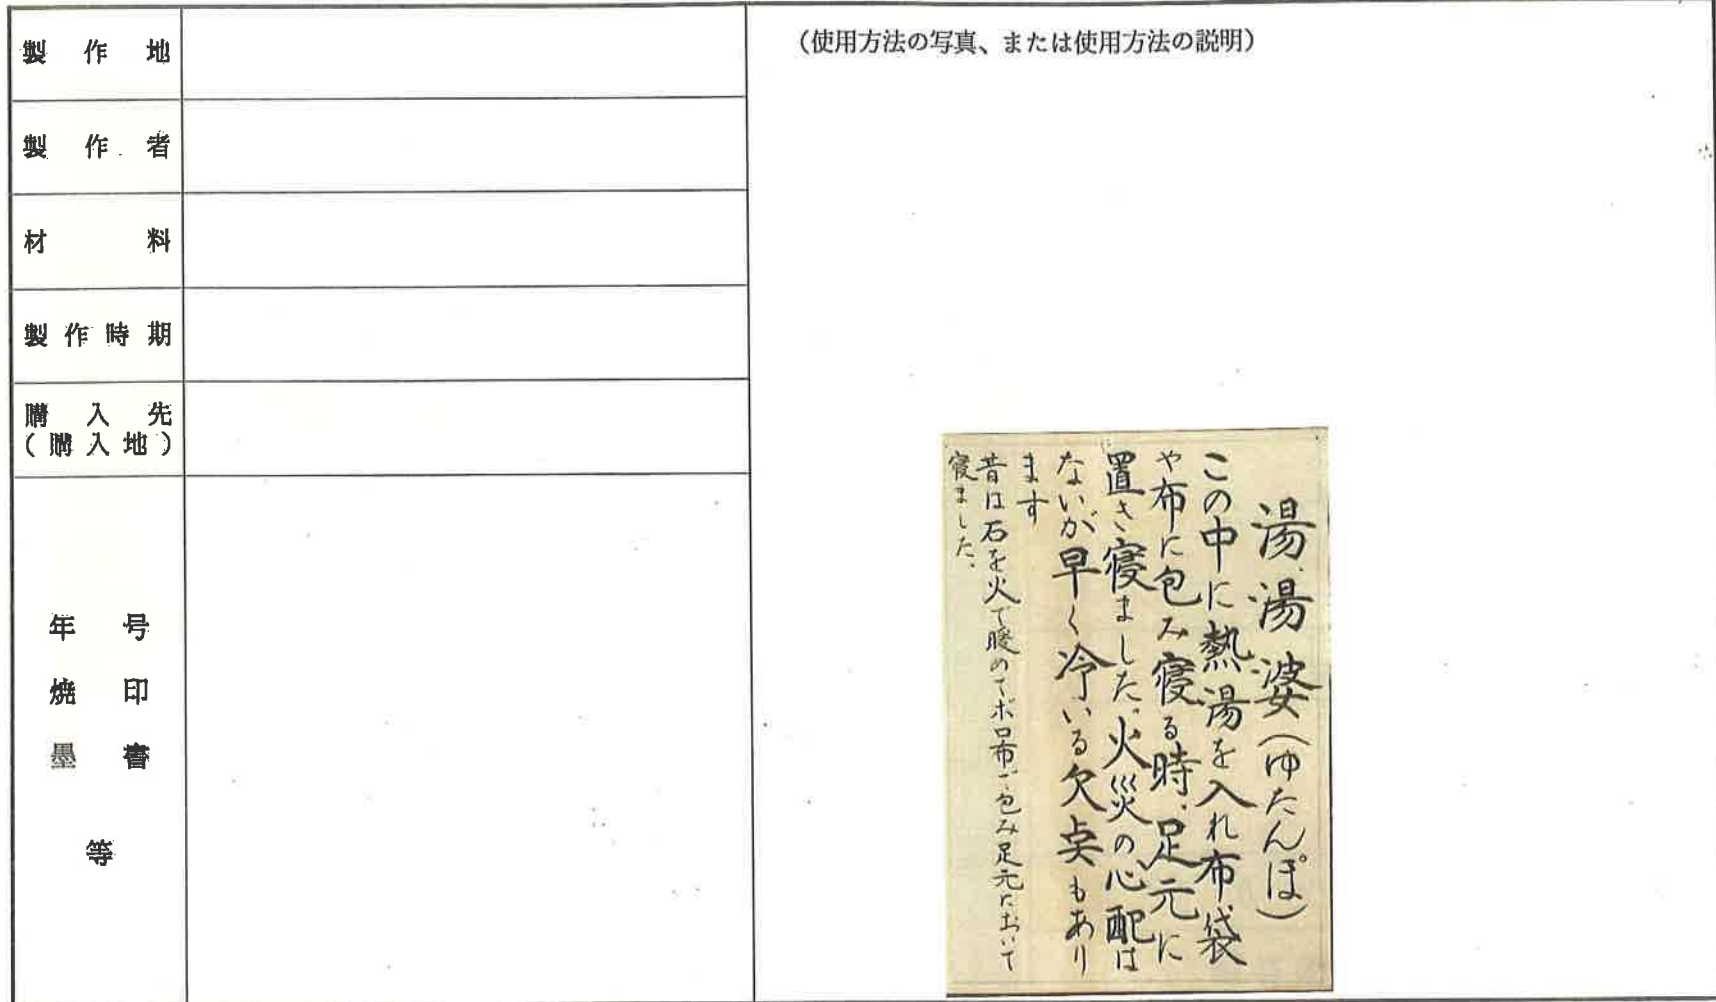 製作地
製作者
材料
製作時期
購入先
(購入地)
年号
焼印
墨書
等
(使用方法の写真、または使用方法の説明)
湯湯婆(ゆたんぽ)
この中に熱湯を入れ布袋
や布に包み寝る時、足元に
置き寝ました。火災の心配は
ないが早く冷いる欠点もあり
ます
昔は石を火で暖めてボロ布で包み足元において
寝ました、